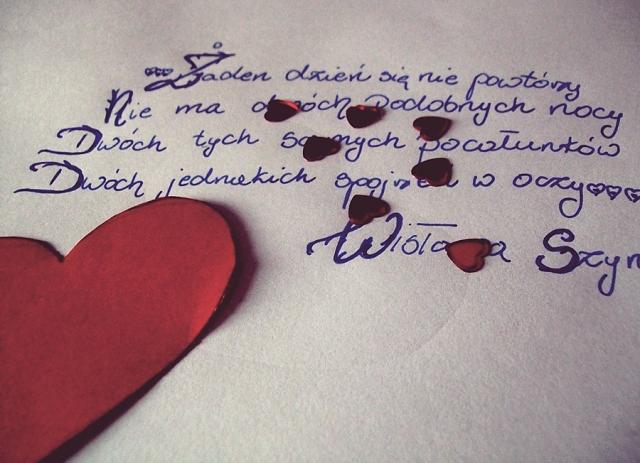 Żaden dzień się nie powtórzy
Nie ma dwóch podobnych nocy
Dwóch tych samych pocałunków
Dwóch jednakich spojrzeń w oczy
Wisława Szym